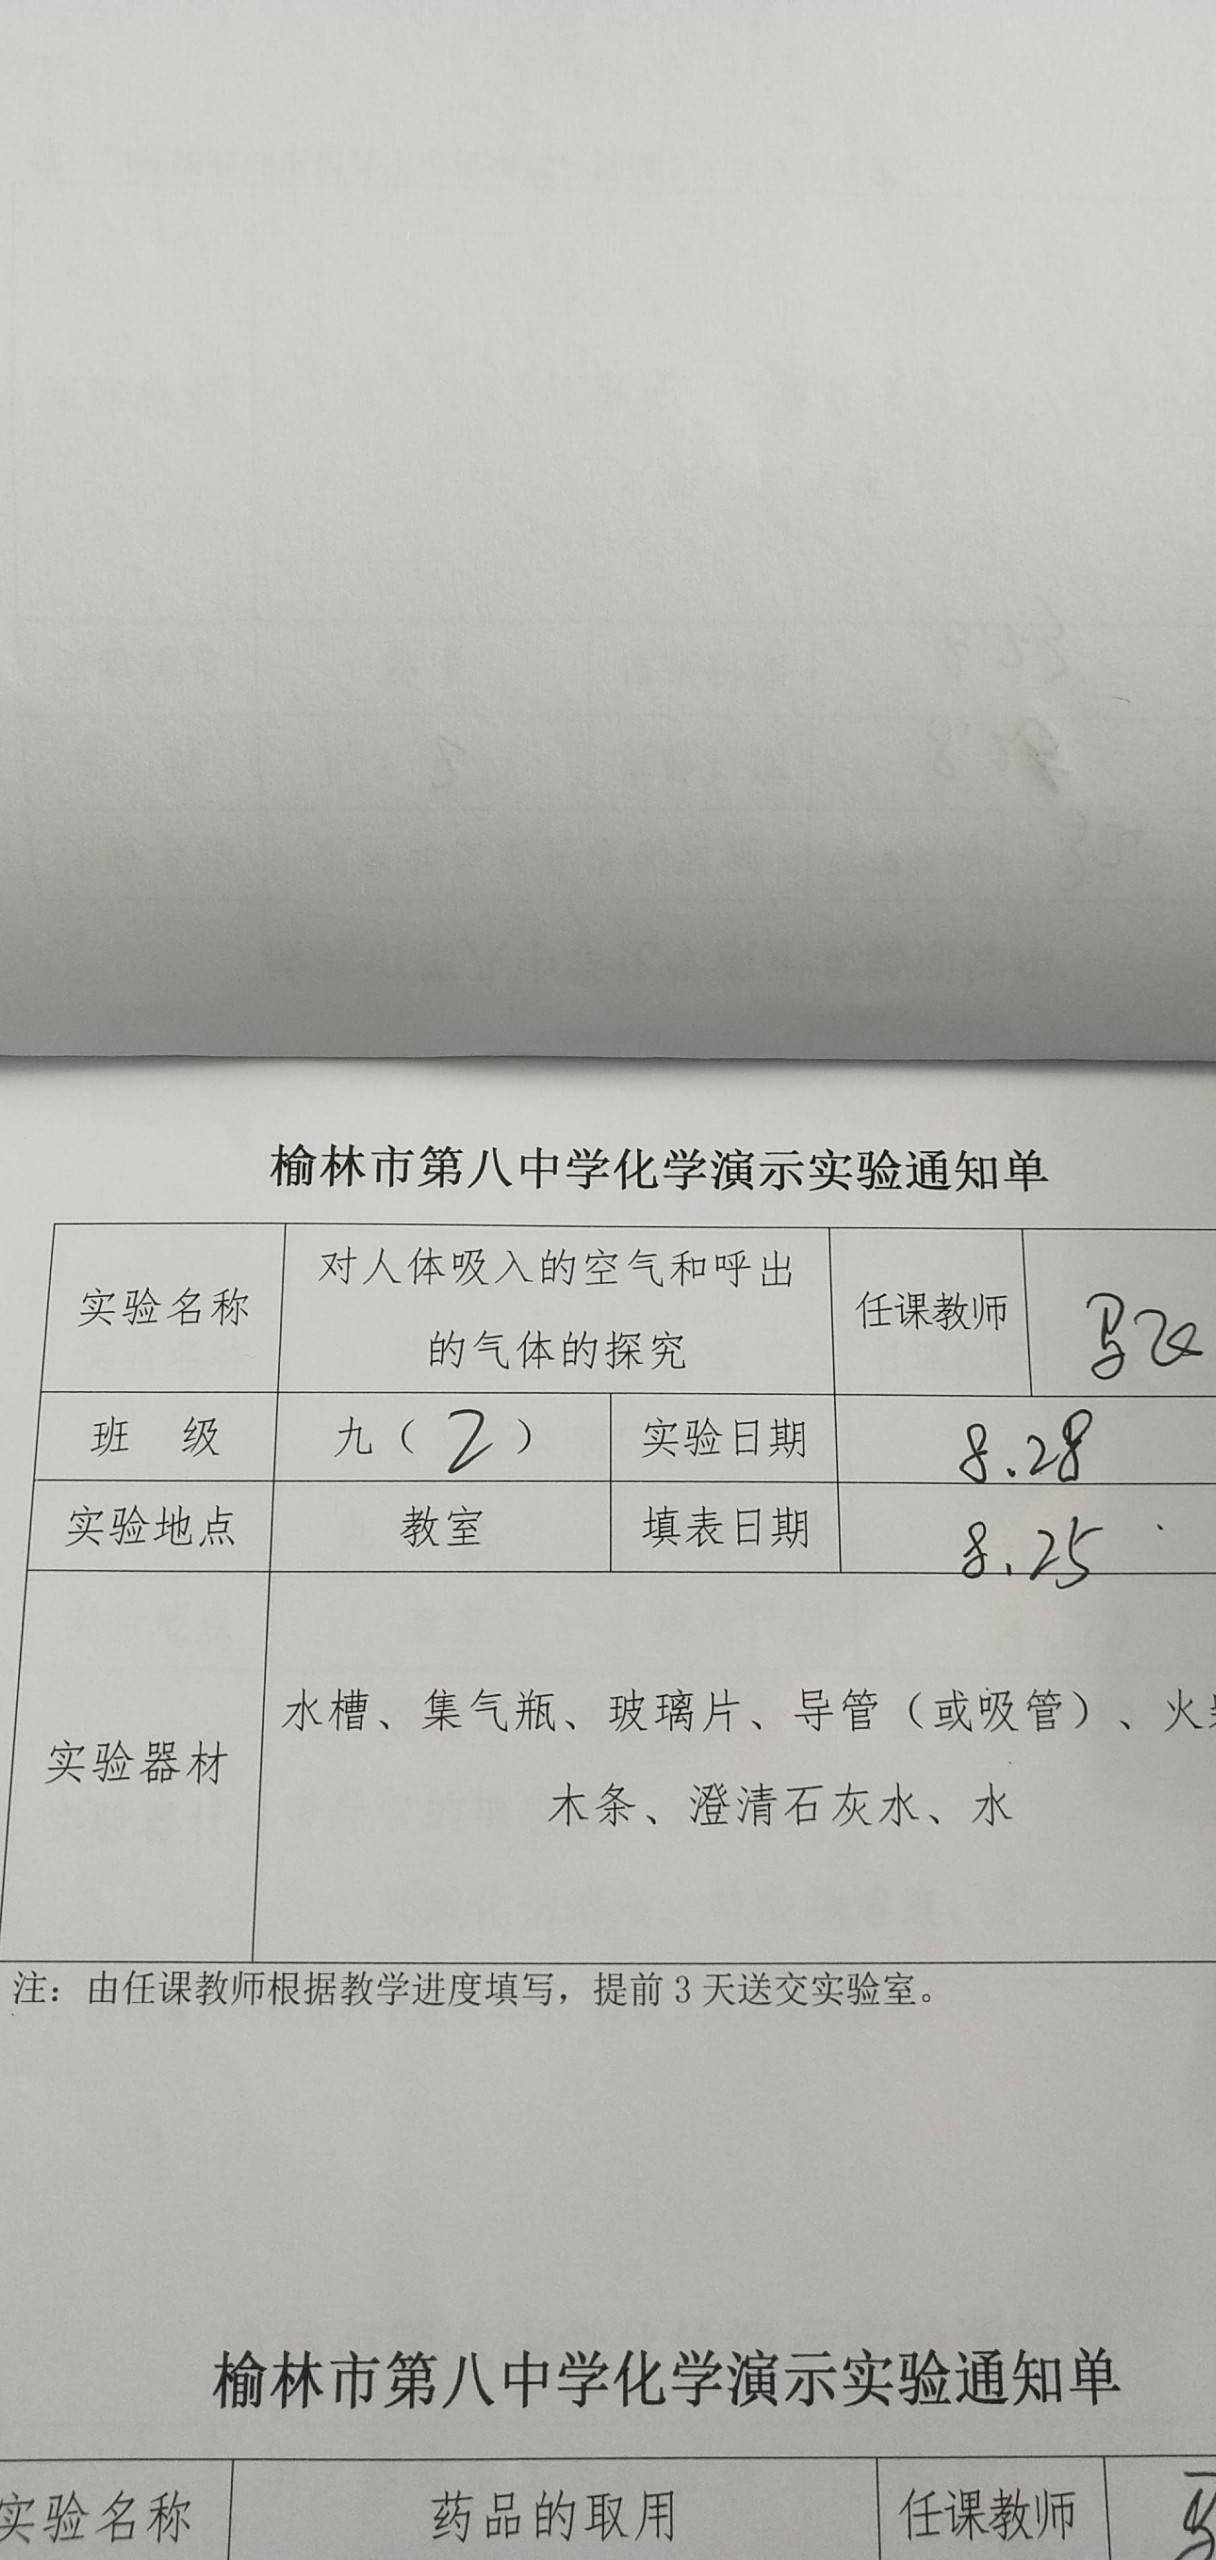 榆林市第八中学化学演示实验通知单
实验名称 对人体吸入的空气和呼出的气体的探究 任课教师 马
班 级 九（2） 实验日期 8.28
实验地点 教室 填表日期 8.25
实验器材
水槽、集气瓶、玻璃片、导管（或吸管）、火
木条、澄清石灰水、水
注：由任课教师根据教学进度填写，提前3天送交实验室。
榆林市第八中学化学演示实验通知单
实验名称 药品的取用 任课教师